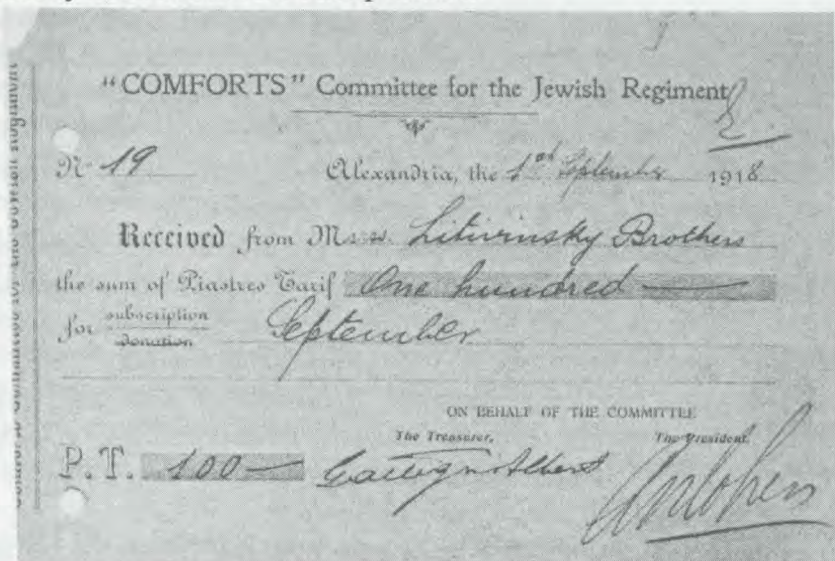 "COMFORTS" Committee for the Jewish Regiment
No 19 Alexandria, the 1st September 1918
Received from Mss. Litwinsky Brothers
the sum of Piastres Tarif One hundred
for subscription
donation
September
ON BEHALF OF THE COMMITTEE
The Treasurer, The President,
P. T. 100 Albert